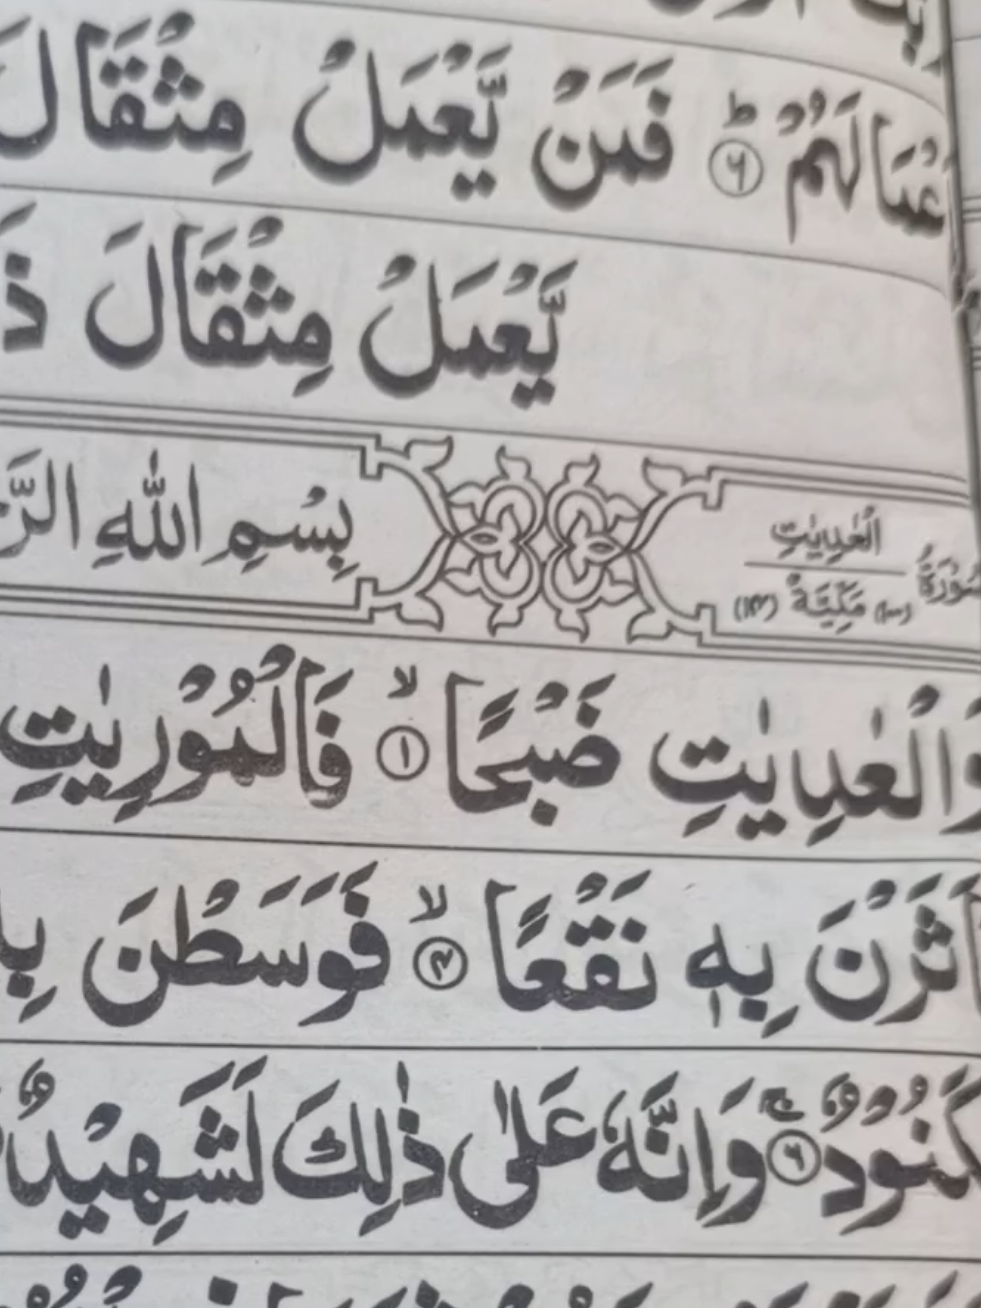 عْمَالَهُمْ ؕ ﴿۶﴾ فَمَنْ يَّعْمَلْ مِثْقَالَ
يَّعْمَلْ مِثْقَالَ ذَ
سُوْرَةُ الْعٰدِيٰتِ مَكِّيَّةٌ (۱۴) بِسْمِ اللّٰهِ الرَّ
وَالْعٰدِيٰتِ ضَبْحًا ۙ ﴿۱﴾ فَالْمُوْرِيٰتِ
اَثَرْنَ بِهٖ نَقْعًا ۙ ﴿۴﴾ فَوَسَطْنَ بِ
كَنُوْدٌ ۚ ﴿۶﴾ وَاِنَّهٗ عَلٰى ذٰلِكَ لَشَهِيْدٌ